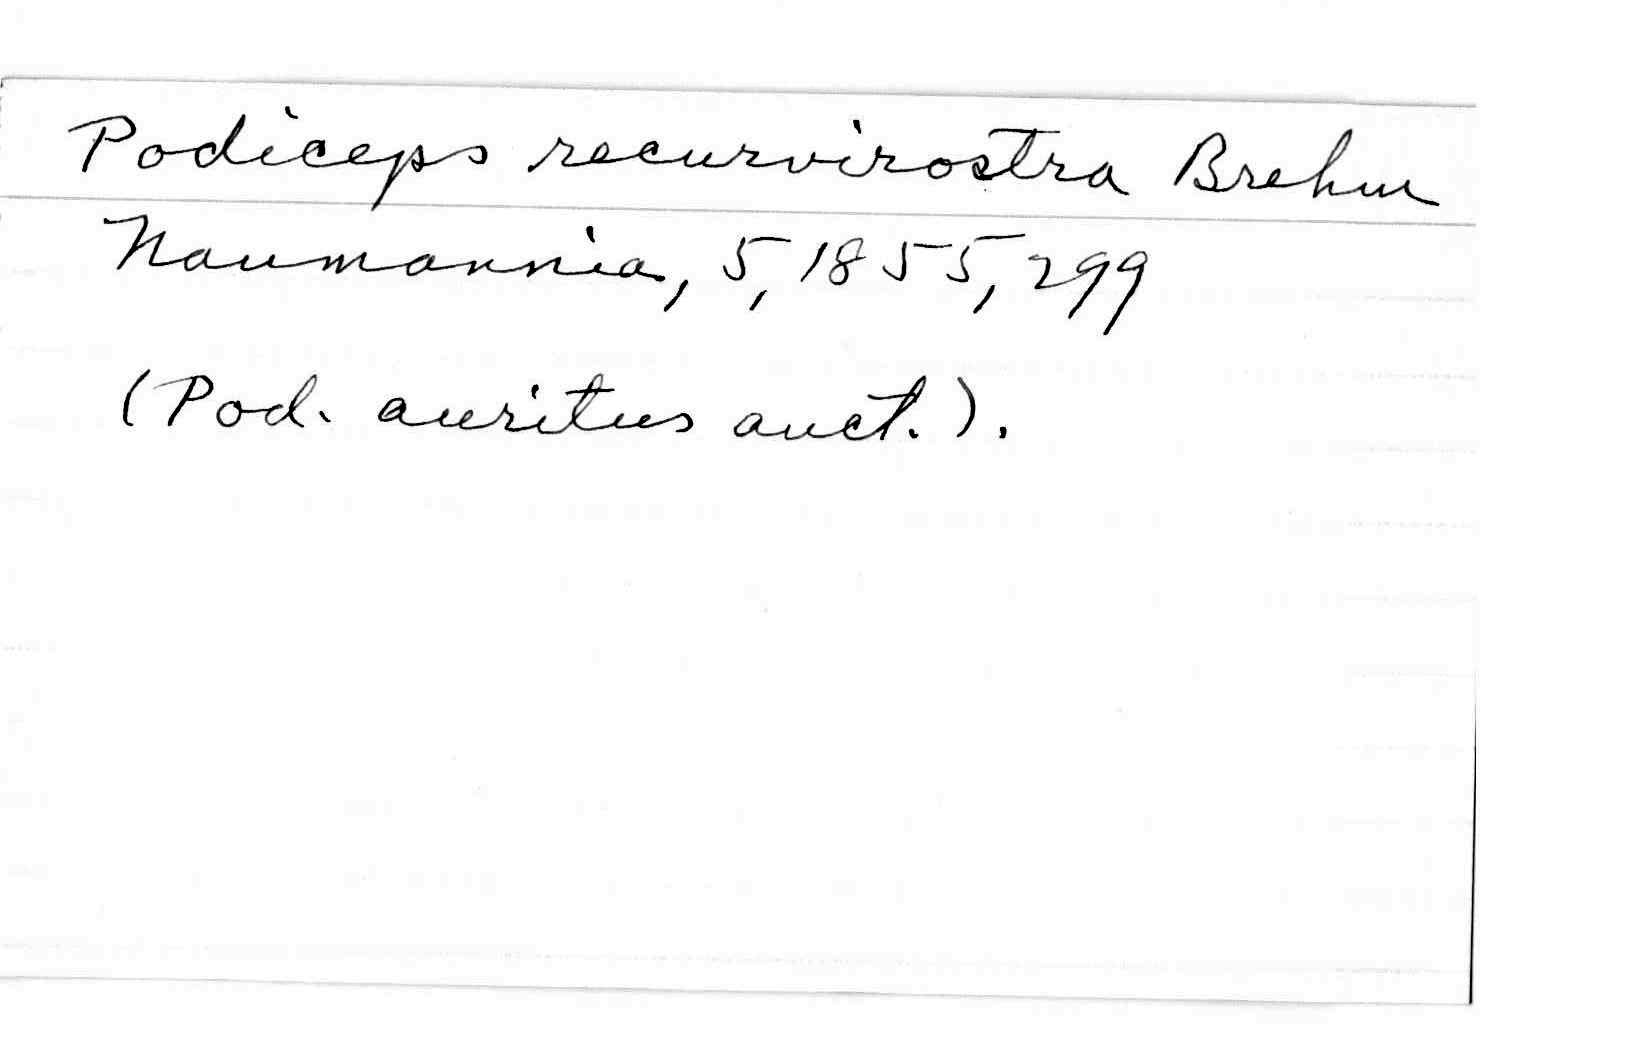 Podiceps recurvirostra Brehm
Naumannia, 5, 1855, 299
(Pod. auritus auct.).